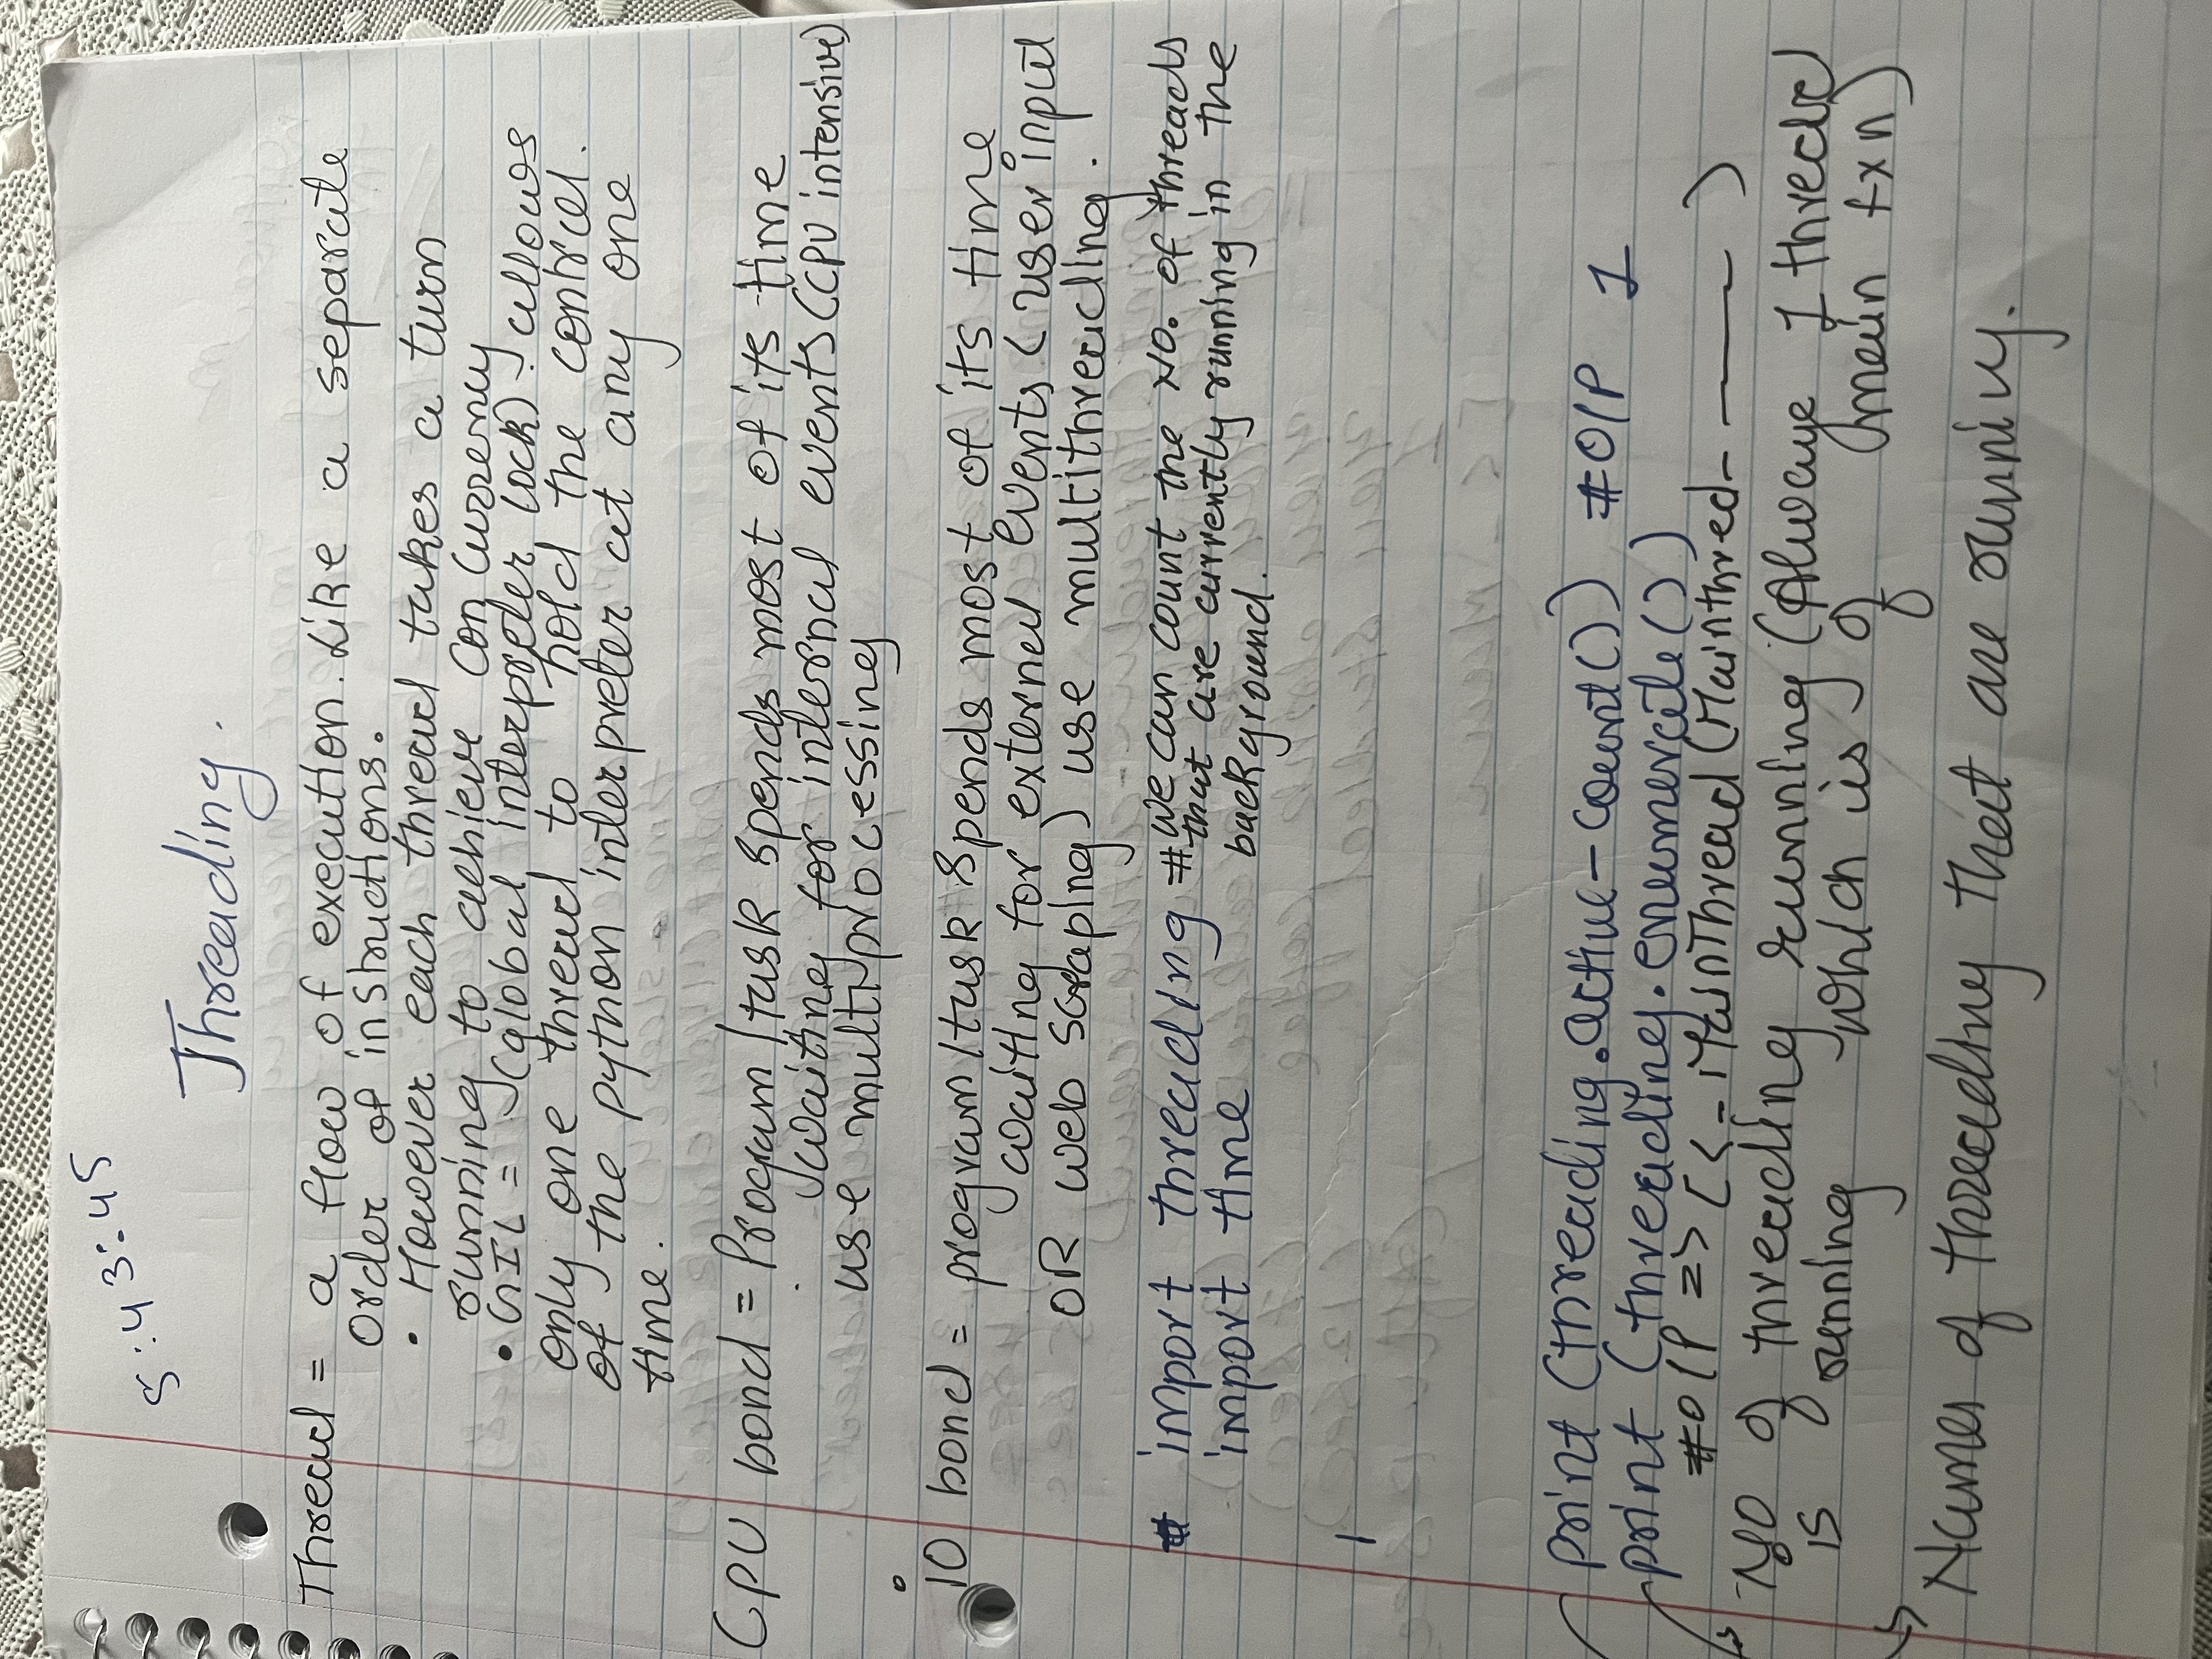 5:43:45
Threading.
Thread = a flow of execution. Like a separate
order of instructions.
• However each thread takes a turn
running to achieve concurrency
• GIL = (global interpreter lock) allows
only one thread to hold the control.
of the python interpreter at any one
time.
CPU bond = Program/task spends most of its time
waiting for internal events (CPU intensive)
use multiprocessing
io bond = program/task spends most of its time
waiting for external events (user input
OR web scraping) use multithreading.
# import threading # we can count the NO. of threads
that are currently running in the
import time
background.
print (threading.active-count()) #O/P 1
print (threading.enumerate())
#O/P => [<_MainThread (Mainthred- ——— )
NO of threading running (Always 1 thread
is running which is of main fxn)
Names of threading that are running.